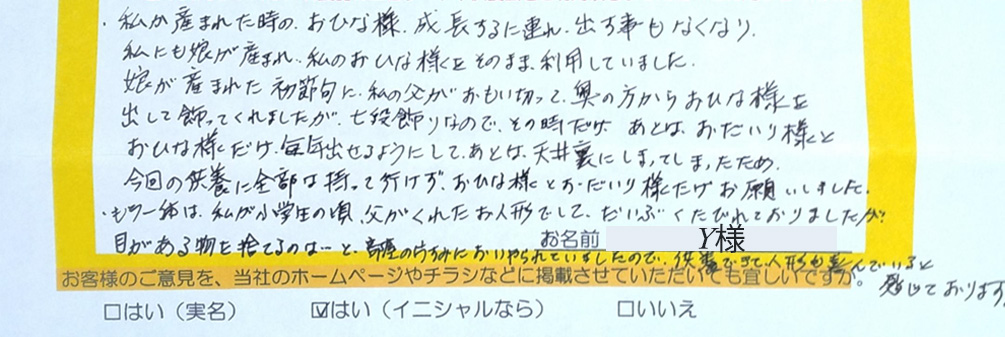 ・私が産まれた時の、おひな様、成長するに連れ、出す事もなくなり、
私にも娘が産まれ、私のおひな様をそのまま利用していました。
娘が産まれた初節句に、私の父がおもい切って、奥の方からおひな様を
出して飾ってくれましたが、七段飾りなので、その時だけ、あとは、おだいり様と
おひな様だけ、毎年出せるようにして、あとは、天井裏にしまってしまったため、
今回の供養に全部は持って行けず、おひな様とおだいり様だけお願いしました。
・もう一緒は、私が小学生の頃、父がくれたお人形でして、だいぶくたびれておりましたが、
目がある物を捨てるのは…と、部屋の片すみにおいやられていましたので、供養できて、人形も喜んでいると
感じております。
お名前 Y様
お客様のご意見を、当社のホームページやチラシなどに掲載させていただいても宜しいですか。
□はい（実名） ☑はい（イニシャルなら） □いいえ